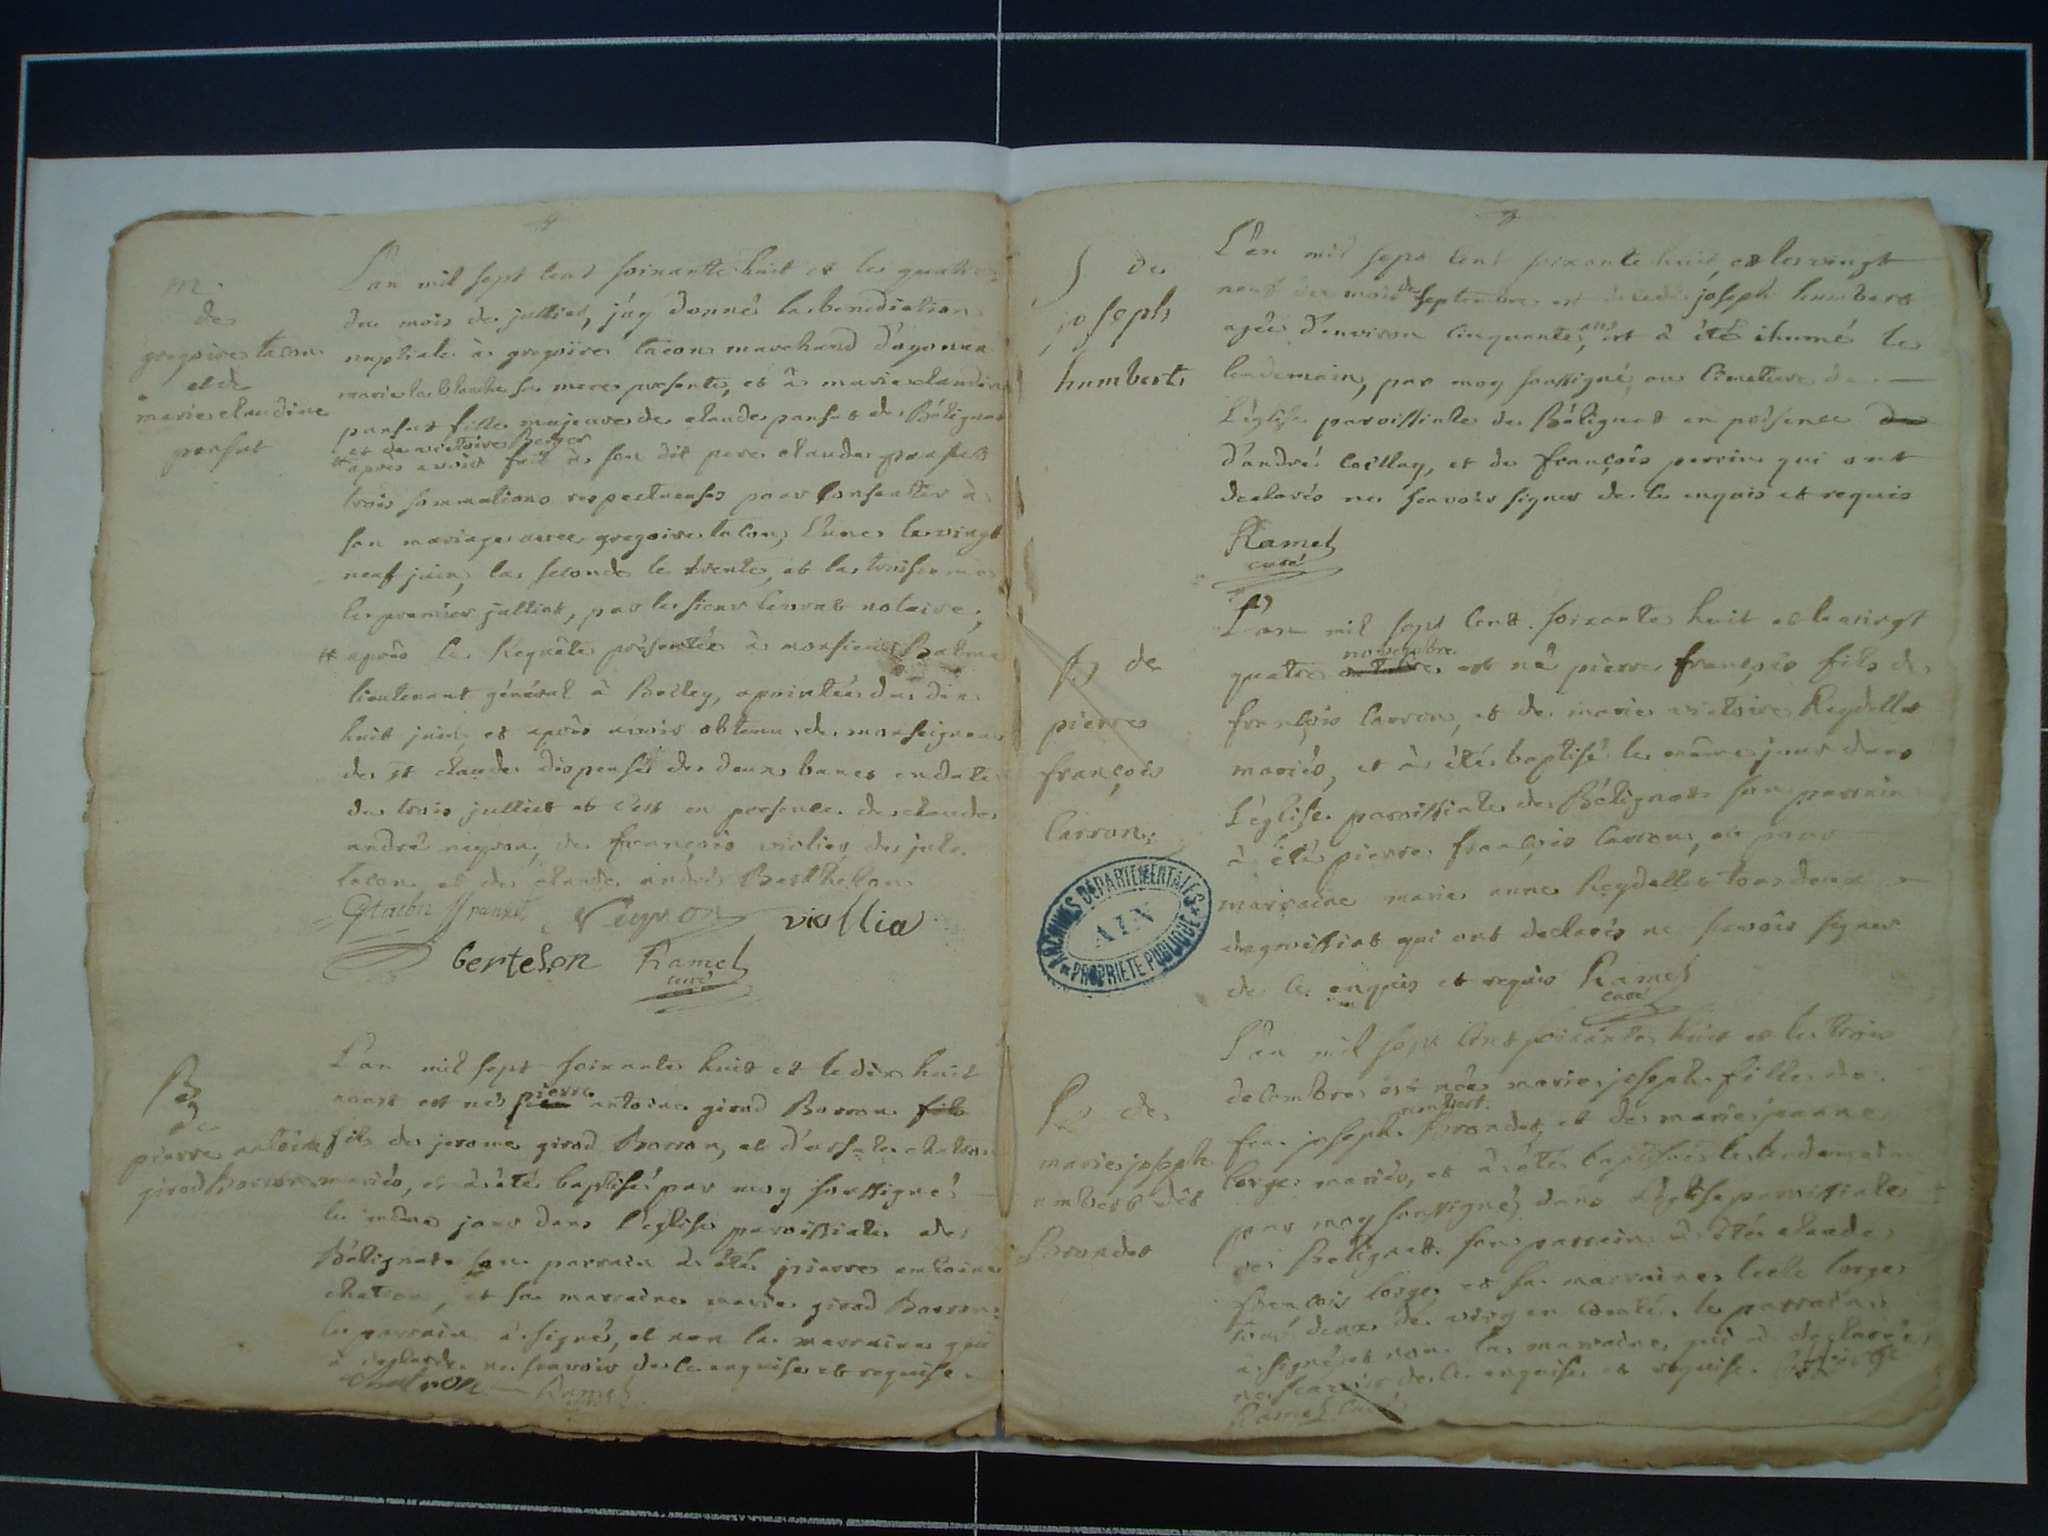 m.
de
gregoire tacon
et de
marie claudine
pansut
L'an mil sept cent soixante huit et le quatre
du mois de julliet, j'ay donné la benediction
nuptiale à gregoire tacon marchand d'oyonna
marie la blanche sa mere presente, et à marie claudine
pansut fille majeure de claude pansut de Bélignat
et de victoire Berger
après avoir fait à son dit pere claude pansut
trois sommations respectueuses pour consenter à
son mariage avec gregoire tacon, l'une le vingt
neuf juin, la seconde le trente, et la troisieme
le premier julliet, par le sieur notaire;
après la Requête présentée à monsieur Balme
lieutenant général à Belley, apointée du dix
huit juin, et après avoir obtenu de monseigneur
de st claude dispense de deux bancs en date
du trois julliet et c'est en presence de claude
andré neyron, de françois violier, de
tacon, et de claude andré Berthelon
Gtacon pansut Neyron viollia
bertelon Ramel
curé
B
de
pierre antoine
girod Borron
L'an mil sept soixante huit et le dix huit
aoust est né pierre antoine girod Borron fils
fils de jerome girod Borron, et d'ursule chatron
mariés, et à été baptisé par moy soussigné
le même jour dans l'église paroissiale de
Bélignat son parrain à été pierre antoine
chatron, et sa marraine marie girod Borron
le parrain à signé, et non la marraine qui
à déclaré ne sçavoir de ce enquise et requise.
chatron Ramel
S de
joseph
humbert
L'an mil sept cent soixante huit, et le vingt
neuf du mois de septembre est decedé joseph humbert
agée d'environ cinquante ans, et à été ihumé le
lendemain, par moy soussigné, au cimetiere de
l'église paroissiale de Bélignat en présence de
d'andré Coillay, et de françois perrin qui ont
declarés ne scavoir signer de ce enquis et requis
Ramel
curé
B de
pierre
françois
Carron
L'an mil sept cent soixante huit et le vingt
novembre
quatre octobre est né pierre françois fils de
françois Carron, et de marie victoire Reydellet
mariés, et à été baptisé le même jour dans
L'église paroissiale de Bélignat son parrain
à été pierre françois Carron, et pour
marraine marie anne Reydellet tous deux
de groissiat qui ont declarés ne scavoir signer
de ce enquis et requis Ramel
curé
ARCHIVES DÉPARTEMENTALES
AIN
PROPRIÉTÉ PUBLIQUE
B de
marie joseph
umbert dit
Brondet
L'an mil sept cent soixante huit et le trois
decembre est née marie joseph fille de
umbert
feu joseph Brondet, et de marie jeanne
lorge mariés, et à été baptisée le lendemain
par moy soussigné, dans l'église paroissiale
de Belignat. son parrain à été claude
françois lorge et sa marraine lorge
tous deux de le parrain
à signé et non la marraine, qui à declarée
ne scavoir de ce enquise et requise.
Ramel curé